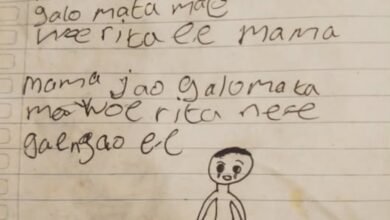 galo mata mae
woe rita ee mama
mama jao galomata
me woe rita nese
gaengao ee